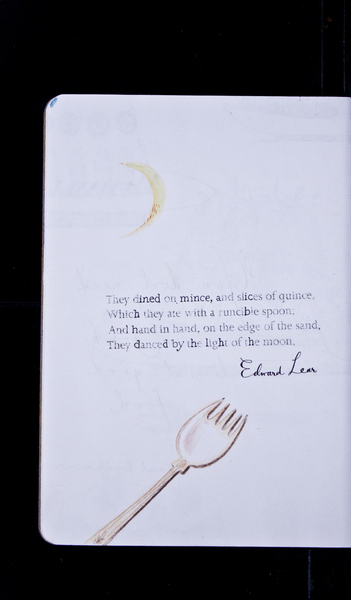 They dined on mince, and slices of quince,
Which they ate with a runcible spoon;
And hand in hand, on the edge of the sand,
They danced by the light of the moon.
Edward Lear